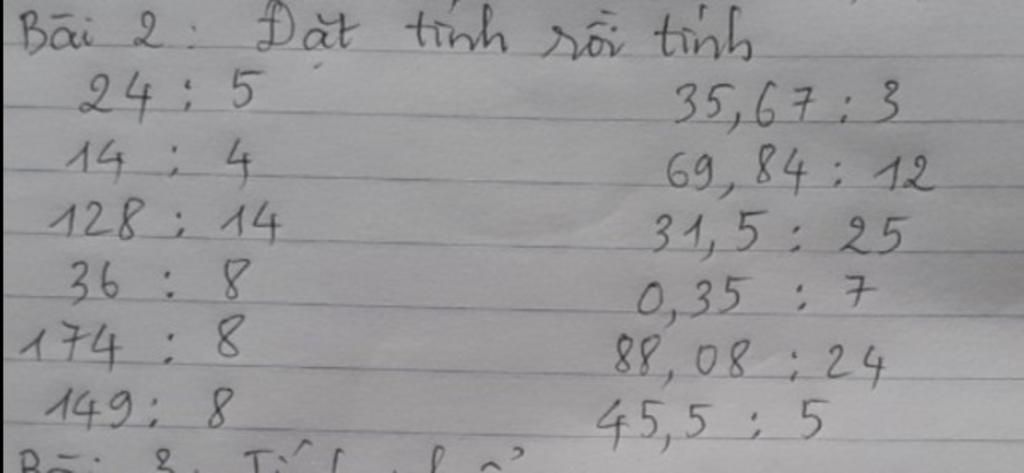 Bài 2: Đặt tính rồi tính
24 : 5 35,67 : 3
14 : 4 69,84 : 12
128 : 14 31,5 : 25
36 : 8 0,35 : 7
174 : 8 88,08 : 24
149 : 8 45,5 : 5
Bài 3: